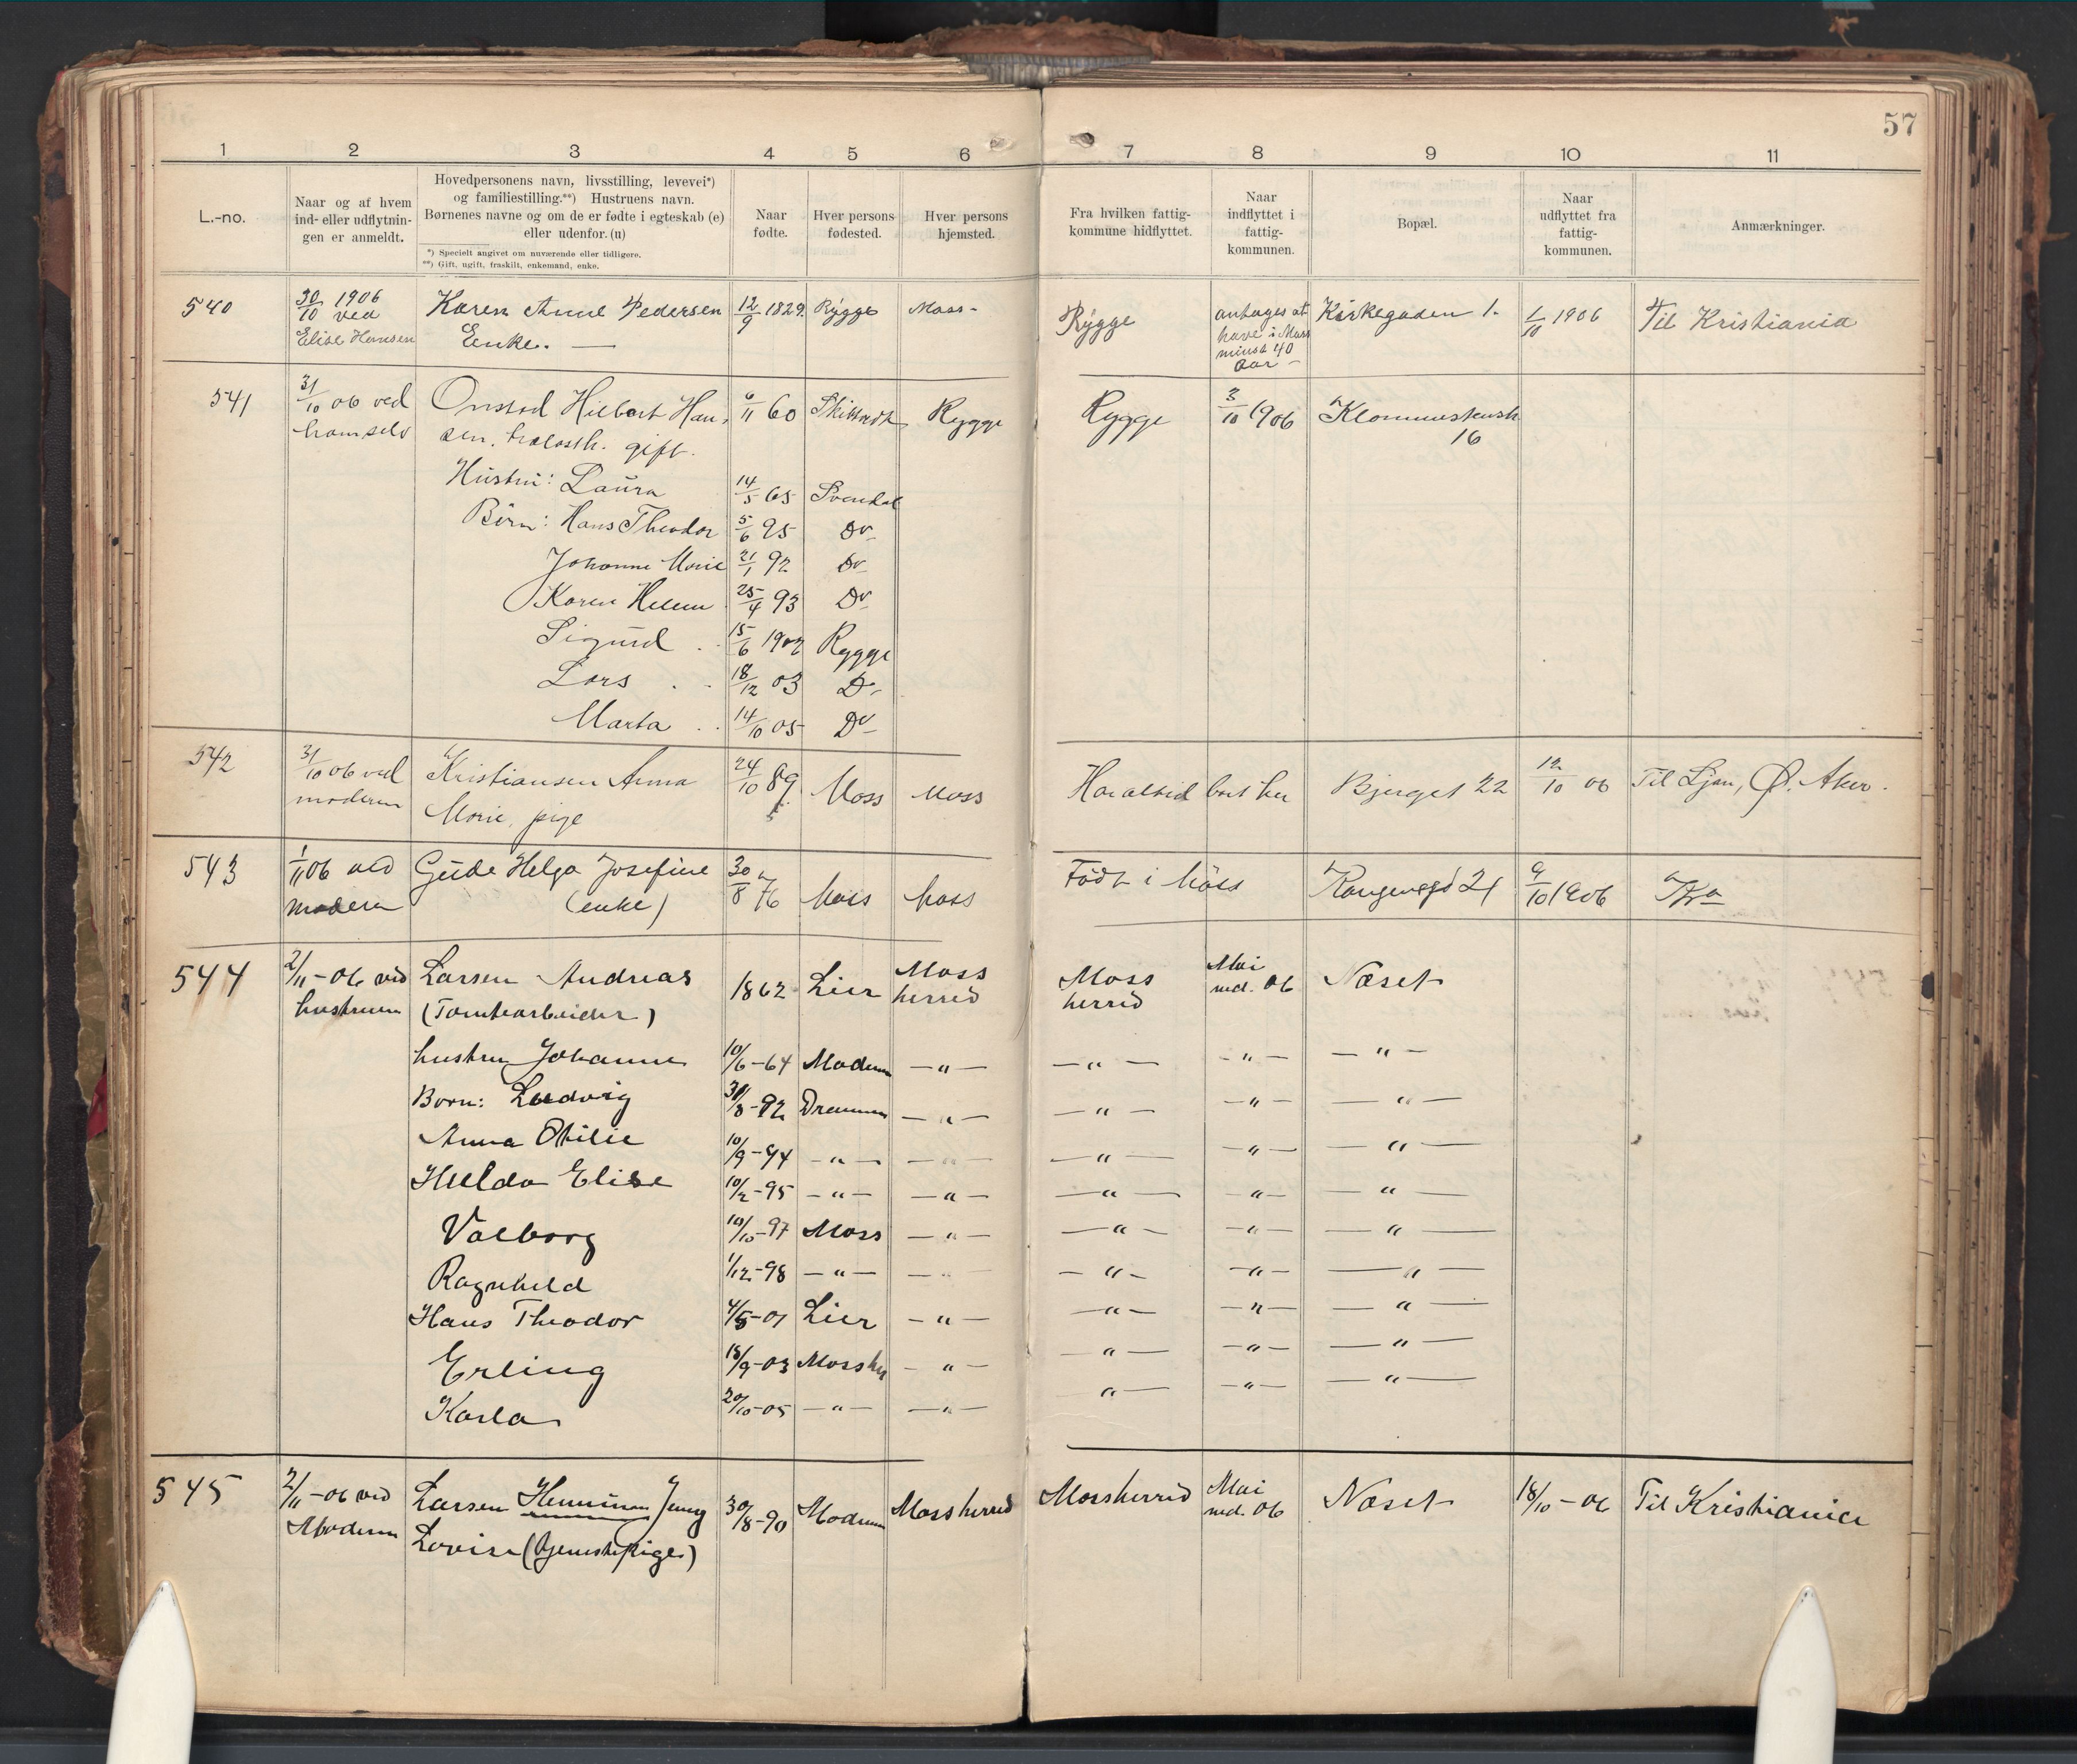 57
1 2 3 4 5 6 7 8 9 10 11
L.-no.
Naar og af hvem
ind- eller udflytnin-
gen er anmeldt.
Hovedpersonens navn, livsstilling, levevei*)
og familiestilling.**) Hustruens navn.
Børnenes navne og om de er fødte i egteskab (e)
eller udenfor. (u)
*) Specielt angivet om nuværende eller tidligere.
**) Gift, ugift, fraskilt, enkemand, enke.
Naar
fødte.
Hver persons
fødested.
Hver persons
hjemsted.
Fra hvilken fattig-
kommune hidflyttet.
Naar
indflyttet i
fattig-
kommunen.
Bopæl.
Naar
udflyttet fra
fattig-
kommunen.
Anmærkninger.
540 30/10 1906 Karen Anne Pedersen 12/9 1829. Rygge Moss- Rygge antages at Kirkegaden 1. 1/10 1906 Til Kristiania
ved have i Moss
Elise Hansen Enke. — minst 40
Aar —
541 31/10 06 ved Onstad Hilbert Han- 6/11 60 Rygge Rygge 3/10 1906
ham selv sen. gift. 16
Hustru: Laura 14/5 65 Svendal
Børn: Hans Theodor 5/6 95 Do
Johanne Marie 21/1 92 Do
Karen Helene 25/4 93 Do
Sigurd 15/6 1902 Rygge
Lars 18/12 03 Do
Marta 14/10 05 Do
542 31/10 06 ved Kristiansen Anna 24/10 89 Moss Moss Har altid bot her Bjerget 22 12/10 06 Til Ljan, Ø. Aker.
moderen Marie, pige
543 1/11 06 ved Gude Helga Josefine 30/8 76 Moss Moss Født i Moss 21 9/10 1906 Kra
moderen (enke)
544 2/11-06 ved Larsen Andreas 1862 Lier Moss herred Moss herred Mai md. 06 Næset
hustruen (Tomtearbeider)
hustru Johanne 10/6-64 Modum —"— —"— —"— —"—
Børn: Ludvig 30/3-92 Drammen —"— —"— —"— —"—
Anna Otilie 10/9-94 —"— —"— —"— —"— —"—
Hulda Elise 10/2-95 —"— —"— —"— —"— —"—
Valborg 10/10-97 Moss —"— —"— —"— —"—
Ragnhild 1/12-98 —"— —"— —"— —"— —"—
Hans Theodor 4/5-01 Lier —"— —"— —"— —"—
Erling 18/9-03 Moss her —"— —"— —"— —"—
Karla 20/10-05 —"— —"— "— —"— —"—
545 2/11-06 ved Larsen Jenny 30/8-90 Modum Moss herred Moss herred Mai md. 06 Næset 18/10-06 Til Kristiania
Moderen Lovise (tjenestepige)